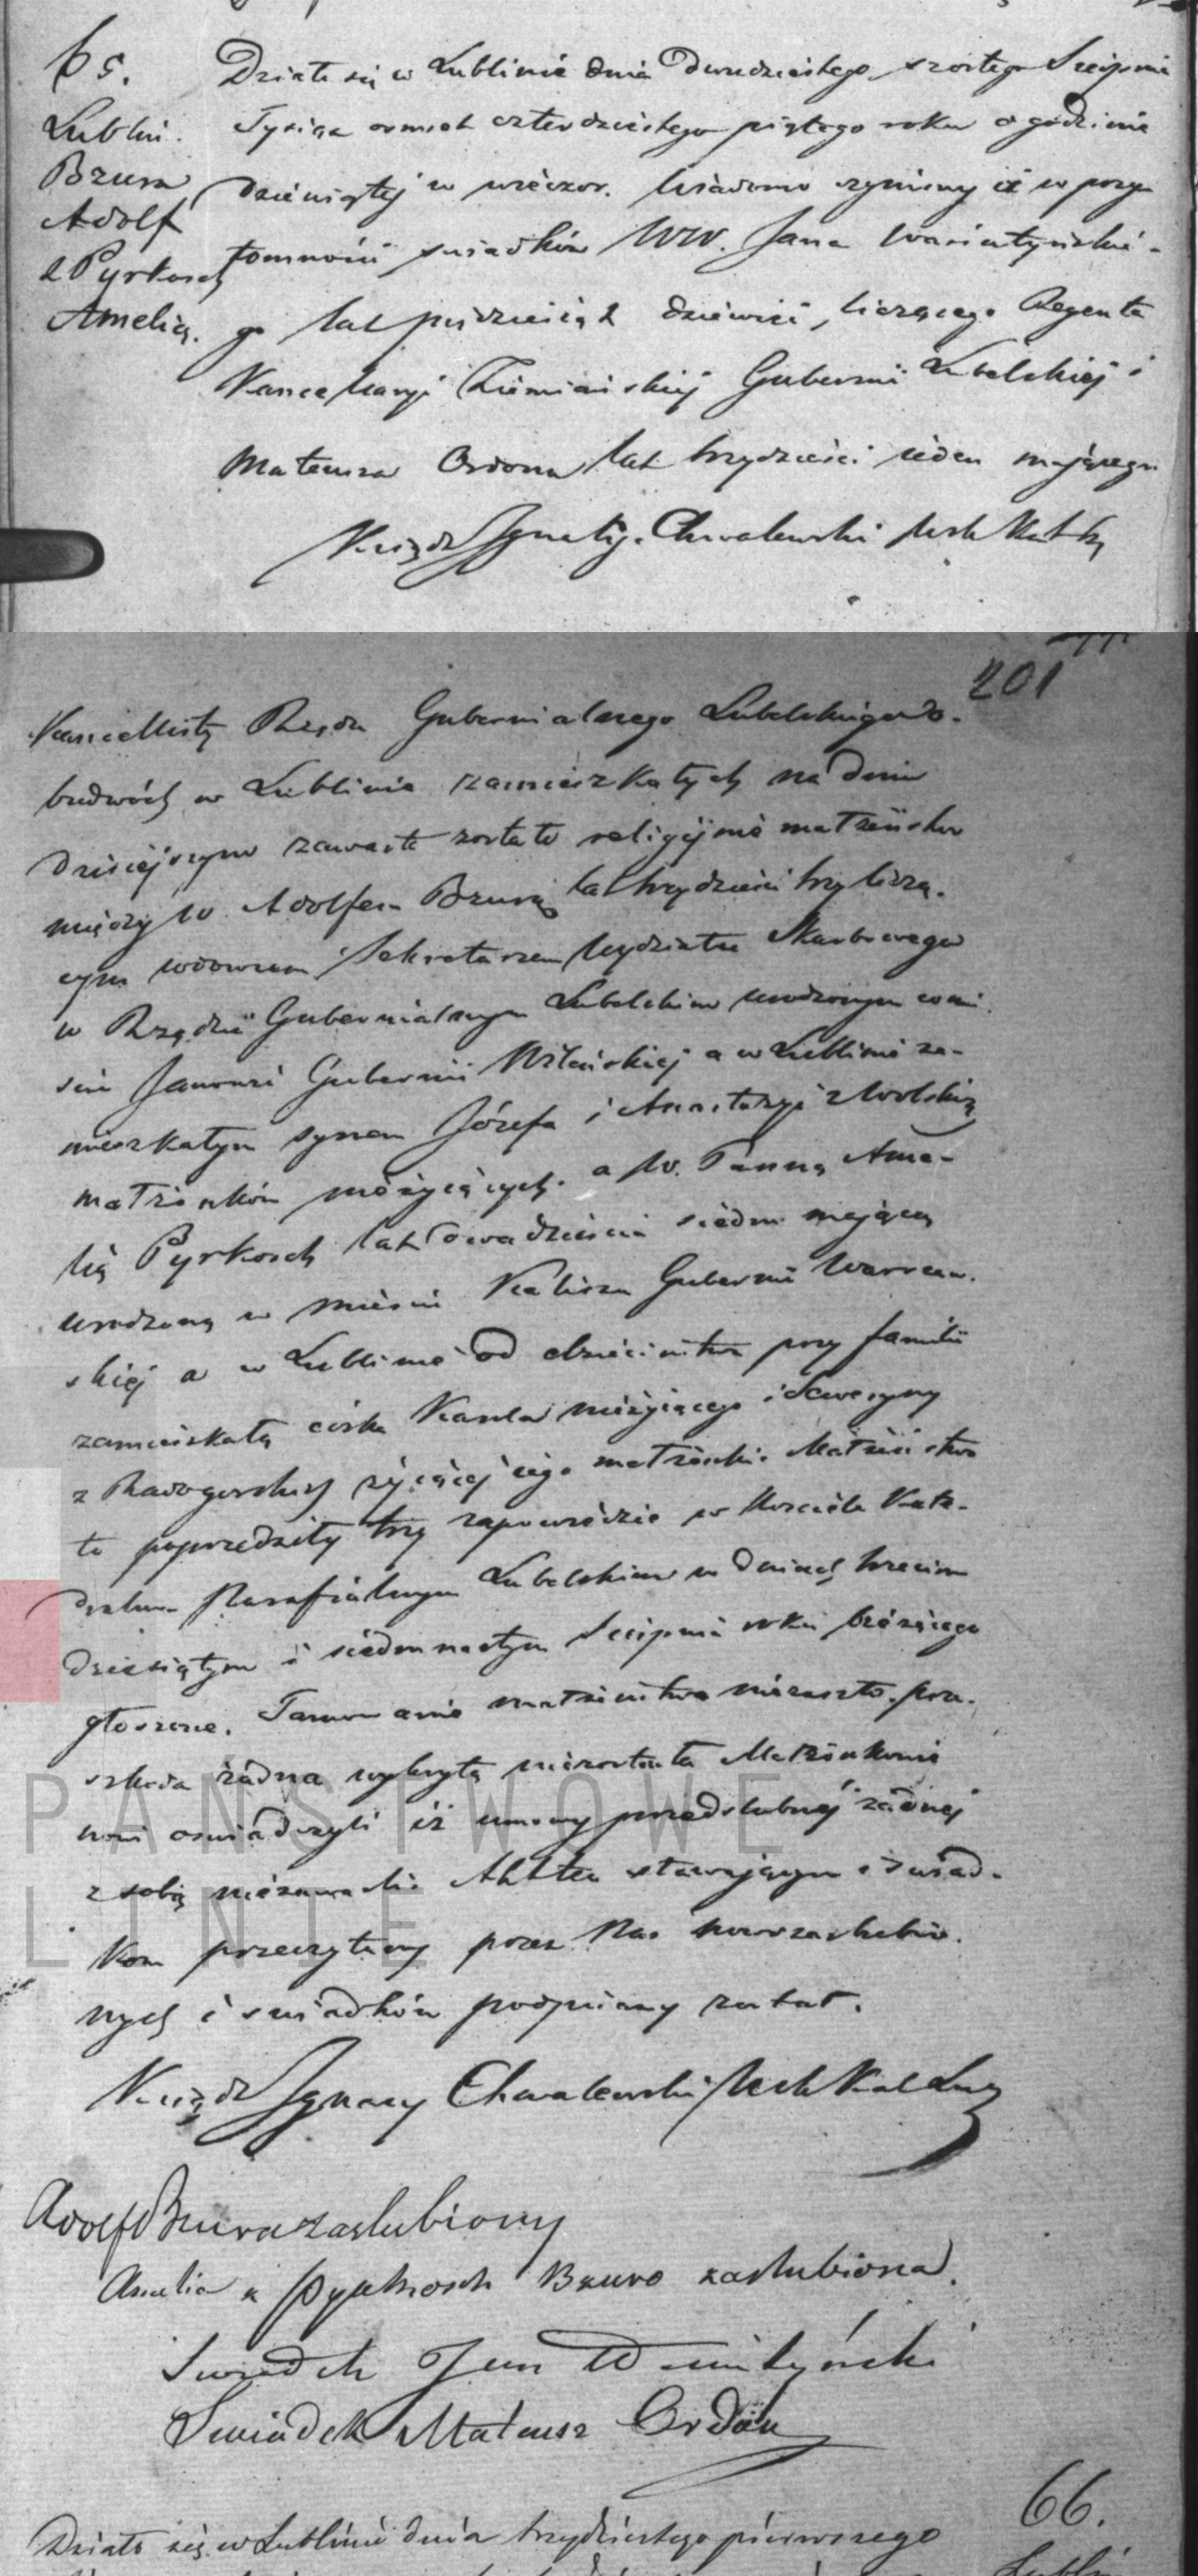 65.
Lublin.
Bzura
Adolf
z Pyrkosch
Amelią.
Działo się w Lublinie dnia Dwudziestego szóstego Sierpnia
Tysiąc ośmset czterdziestego piątego roku o godzinie
dziewiątej w wieczor. Wiadomo czyniemy iż w przy
tomności świadków WW. Jana
go lat pięćdziesiąt dziewięć, liczącego Regenta
Kancellaryi Ziemiańskiej Gubernii Lubelskiej i
Mateusza Ordona lat trzydzieści jeden mającego
Ksiądz Ignacy Chwalewski
201
Kancellisty Rządu Gubernialnego Lubelskiego o-
budwóch w Lublinie zamieszkałych na dniu
dzisiejszym zawarte zostało religijnie małżeństwo
między W. Adolfem Bzurą lat trzydzieści trzy liczą-
cym wdowcem Sekretarzem Wydziału Skarbowego
w Rządzie Gubernialnym Lubelskim urodzonym we wi
Gubernii Wileńskiej a w Lublinie za-
mieszkałym synem Józefa i Anastazyi z Wolskich
małżonków nieżyjących. a W. Panną Ame-
lią Pyrkosch lat dwadzieścia siedm mającą
urodzoną w mieście Kaliszu Gubernii Warszaw-
skiej a w Lublinie od dzieciństwa przy familii
zamieszkałą córką Karola nieżyjącego i Seweryny
z żyjącej jego małżonki. Małżeństwo
to poprzedziły trzy zapowiedzie w Kościele Kate-
dralnym Parafialnym Lubelskim w dniach trzecim
dziesiątym i siedmnastym Sierpnia roku bieżącego
głoszone. Tamowanie małżeństwa niezaszło. prze-
szkoda żadna wykrytą niezostała Małżonkowie
nowi oświadczyli iż umowy przedślubnej żadnej
z sobą niezawarli. Akt ten stawającym i świad-
kom przeczytany przez Nas nowozaślubio-
nych i świadków podpisany został.
Ksiądz Ignacy Chwalewski
Adolf Bzura zaslubiony
Amelia z Pyrkosch Bzura zaslubiona.
Swiadek Jan
Swiadek Mateusz Ordon
66.
Działo się w Lublinie dnia trzydziestego pierwszego
Lublin
PAŃSTWOWE
LINIE